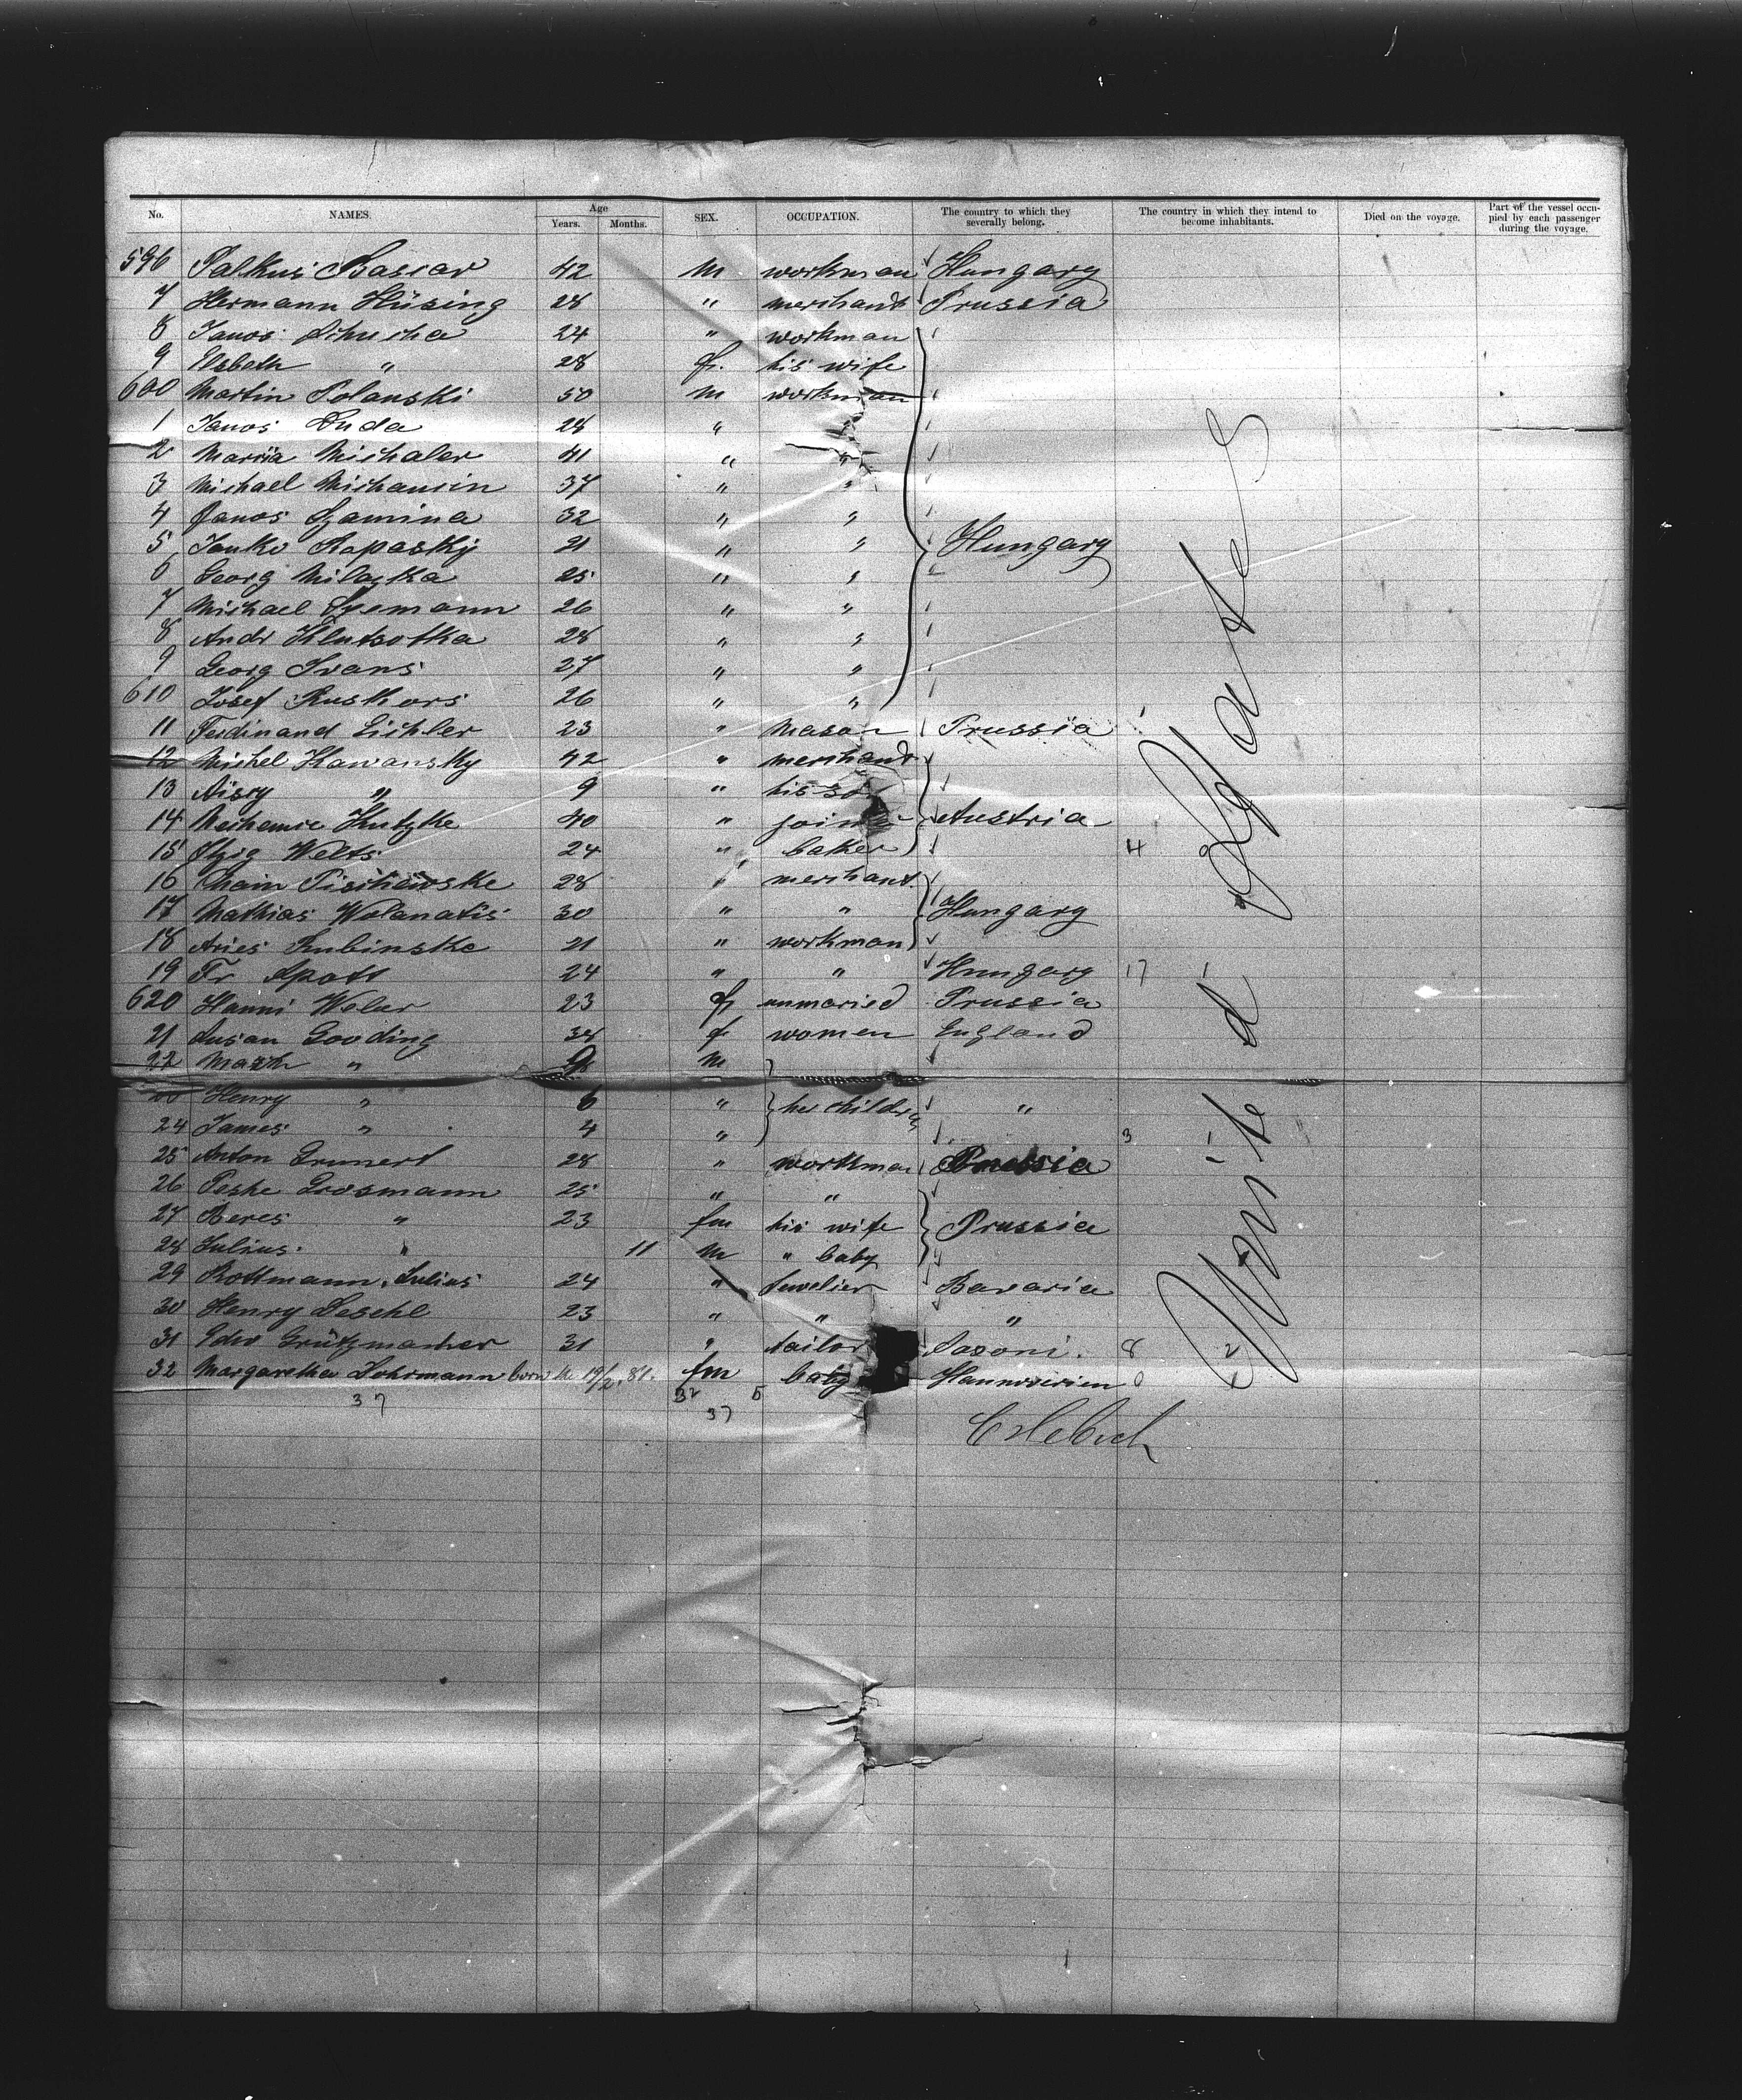 No. NAMES. Age Years. Months. SEX. OCCUPATION. The country to which they severally belong. The country in which they intend to become inhabitants. Died on the voyage. Part of the vessel occupied by each passenger during the voyage.
596 Palkus Bassar 42 m workman Hungary
7 Hermann Hüsing 28 " merchant Prussia
8 Janos Schucha 24 " workman
9 Elsbeth " 28 f. his wife
600 Martin Polanski 50 m workman
1 Janos Duda 28 " "
2 Mariia Michaler 41 " "
3 Michael Michancin 37 " "
4 Janos Szamina 32 " "
5 Janko Rapasky 21 " " Hungary
6 Georg Milazka 25 " "
7 Michael Szemann 26 " "
8 Andr Klutsotka 28 " "
9 Georg Ivans 27 " "
610 Josef Ruskors 26 " "
11 Ferdinand Lichler 23 " mason Prussia 1
12 Michel Kawansky 42 " merchant
13 Aisry " 9 " his son
14 Nechemie Kutzke 40 " joiner Austria
15 Itzig Welts 24 " baker 4
16 Chain Pischewske 28 " merchant
17 Mathias Wolanatis 30 " " Hungary
18 Aries Rubinske 21 " workman
19 Fr Apatt 24 " " Hungary 17 1
620 Hanni Weler 23 f unmaried Prussia
21 Susan Gooding 34 f women England
22 Mark " 9 m
23 Henry " 6 " her children "
24 James " 4 " 3 1
25 Anton Grunert 28 " workman Prussia
26 Peske Grosmann 25 " "
27 Beres " 23 fm his wife Prussia
28 Julius " 11 m " baby
29 Rottmann, Julius 24 " Juwelier Bavaria
30 Henry Seschl 23 " " "
31 Edw Grützmacher 31 " tailor Saxoni. 8 2
32 Margaretha Lohrmann born the 19/2. 81. fm baby Hannoverien 0 1
37 32 5
37
United States